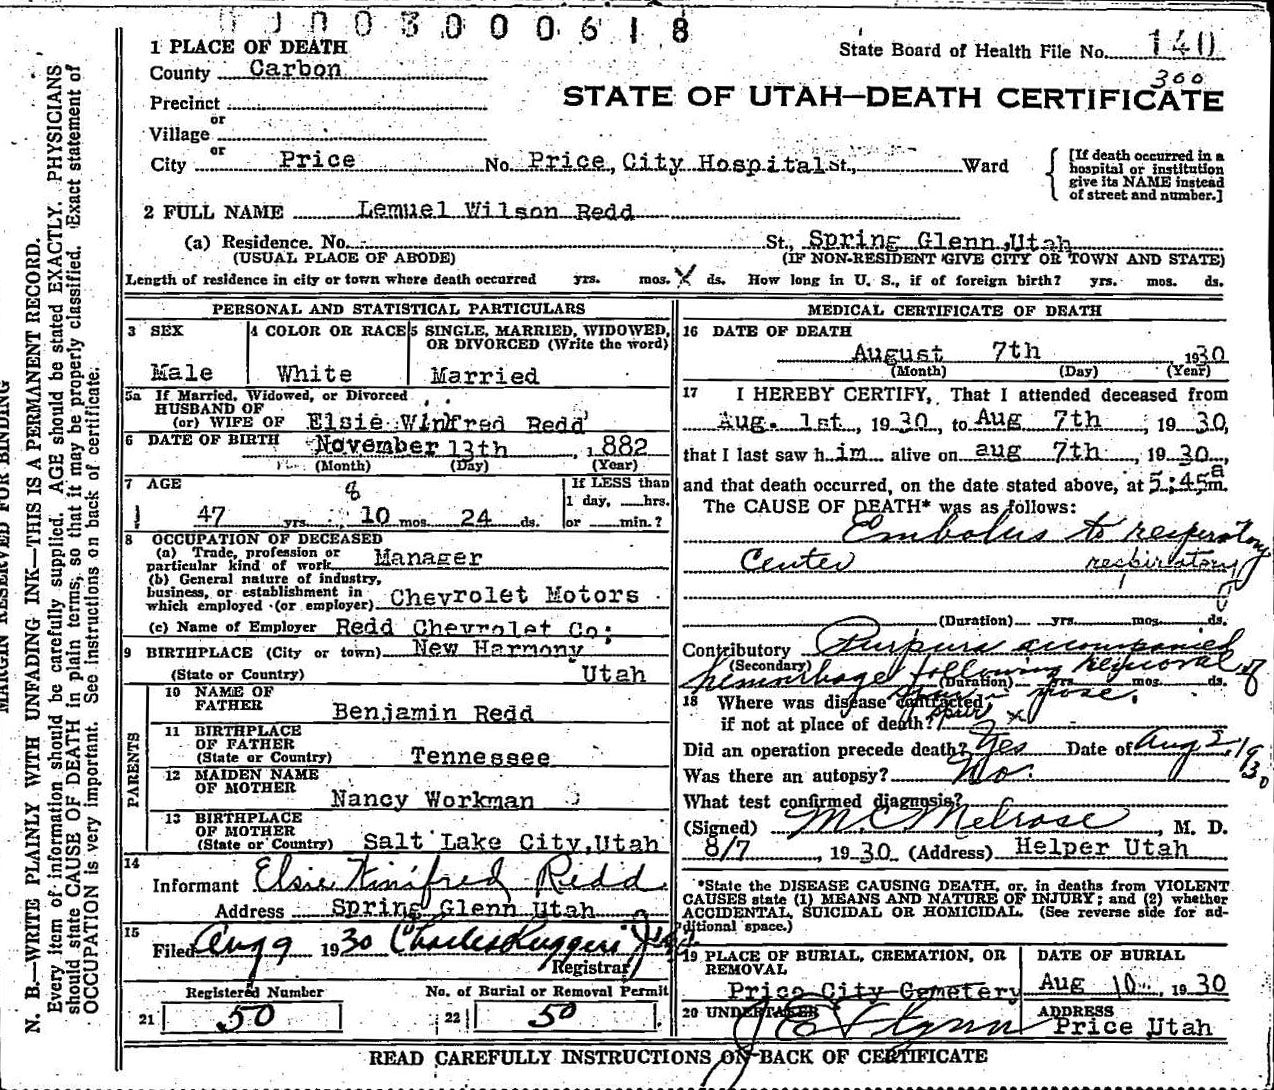 0 0 0 3 0 0 0 6 1 8
1 PLACE OF DEATH
State Board of Health File No. 140
County Carbon
300
STATE OF UTAH—DEATH CERTIFICATE
Precinct
or
Village
or
City Price No. Price, City Hospital St., Ward
[If death occurred in a
hospital or institution
give its NAME instead
of street and number.]
2 FULL NAME Lemuel Wilson Redd
(a) Residence. No. St., Spring Glenn, Utah
(USUAL PLACE OF ABODE) (IF NON-RESIDENT GIVE CITY OR TOWN AND STATE)
Length of residence in city or town where death occurred yrs. mos. X ds. How long in U. S., if of foreign birth? yrs. mos. ds.
PERSONAL AND STATISTICAL PARTICULARS
3 SEX
Male
4 COLOR OR RACE
White
5 SINGLE, MARRIED, WIDOWED,
OR DIVORCED (Write the word)
Married
5a If Married, Widowed, or Divorced
HUSBAND OF
(or) WIFE OF Elsie Winfred Redd
6 DATE OF BIRTH November 13th, 1882
(Month) (Day) (Year)
7 AGE
8
47 yrs. 10 mos. 24 ds.
If LESS than
1 day, hrs.
or min.?
8 OCCUPATION OF DECEASED
(a) Trade, profession or
particular kind of work Manager
(b) General nature of industry,
business, or establishment in
which employed (or employer) Chevrolet Motors
(c) Name of Employer Redd Chevrolet Co;
9 BIRTHPLACE (City or town) New Harmony
(State or Country) Utah
PARENTS
10 NAME OF
FATHER Benjamin Redd
11 BIRTHPLACE
OF FATHER
(State or Country) Tennessee
12 MAIDEN NAME
OF MOTHER Nancy Workman
13 BIRTHPLACE
OF MOTHER
(State or Country) Salt Lake City, Utah
14
Informant Elsie Winifred Redd
Address Spring Glenn Utah
15
Filed Aug 9 1930 Charles Ruggeri
Registrar
Registered Number
21 50
No. of Burial or Removal Permit
22 50
MEDICAL CERTIFICATE OF DEATH
16 DATE OF DEATH
August 7th 1930
(Month) (Day) (Year)
17 I HEREBY CERTIFY, That I attended deceased from
Aug. 1st, 1930, to Aug 7th, 1930,
that I last saw him alive on aug 7th, 1930,
and that death occurred, on the date stated above, at 5:45 a m.
The CAUSE OF DEATH* was as follows:
Embolus to respiratory
Center respiratory
(Duration) yrs. mos. ds.
Contributory Purpura accompanied
(Secondary)
hemorrhage following removal of
(Duration) yrs. mos. ds.
spur in nose.
18 Where was disease contracted,
spur
if not at place of death? X
Did an operation precede death? Yes Date of Aug 2, 1930
Was there an autopsy? No.
What test confirmed diagnosis?
(Signed) M C Melrose, M. D.
8/7, 1930 (Address) Helper Utah
*State the DISEASE CAUSING DEATH, or, in deaths from VIOLENT
CAUSES state (1) MEANS AND NATURE OF INJURY; and (2) whether
ACCIDENTAL, SUICIDAL OR HOMICIDAL. (See reverse side for ad-
ditional space.)
19 PLACE OF BURIAL, CREMATION, OR
REMOVAL
Price City Cemetery
DATE OF BURIAL
Aug 10 1930
20 UNDERTAKER
J E Flynn
ADDRESS
Price Utah
READ CAREFULLY INSTRUCTIONS ON BACK OF CERTIFICATE
MARGIN RESERVED FOR BINDING
N. B.—WRITE PLAINLY WITH UNFADING INK—THIS IS A PERMANENT RECORD.
Every item of information should be carefully supplied. AGE should be stated EXACTLY. PHYSICIANS
should state CAUSE OF DEATH in plain terms, so that it may be properly classified. Exact statement of
OCCUPATION is very important. See instructions on back of certificate.